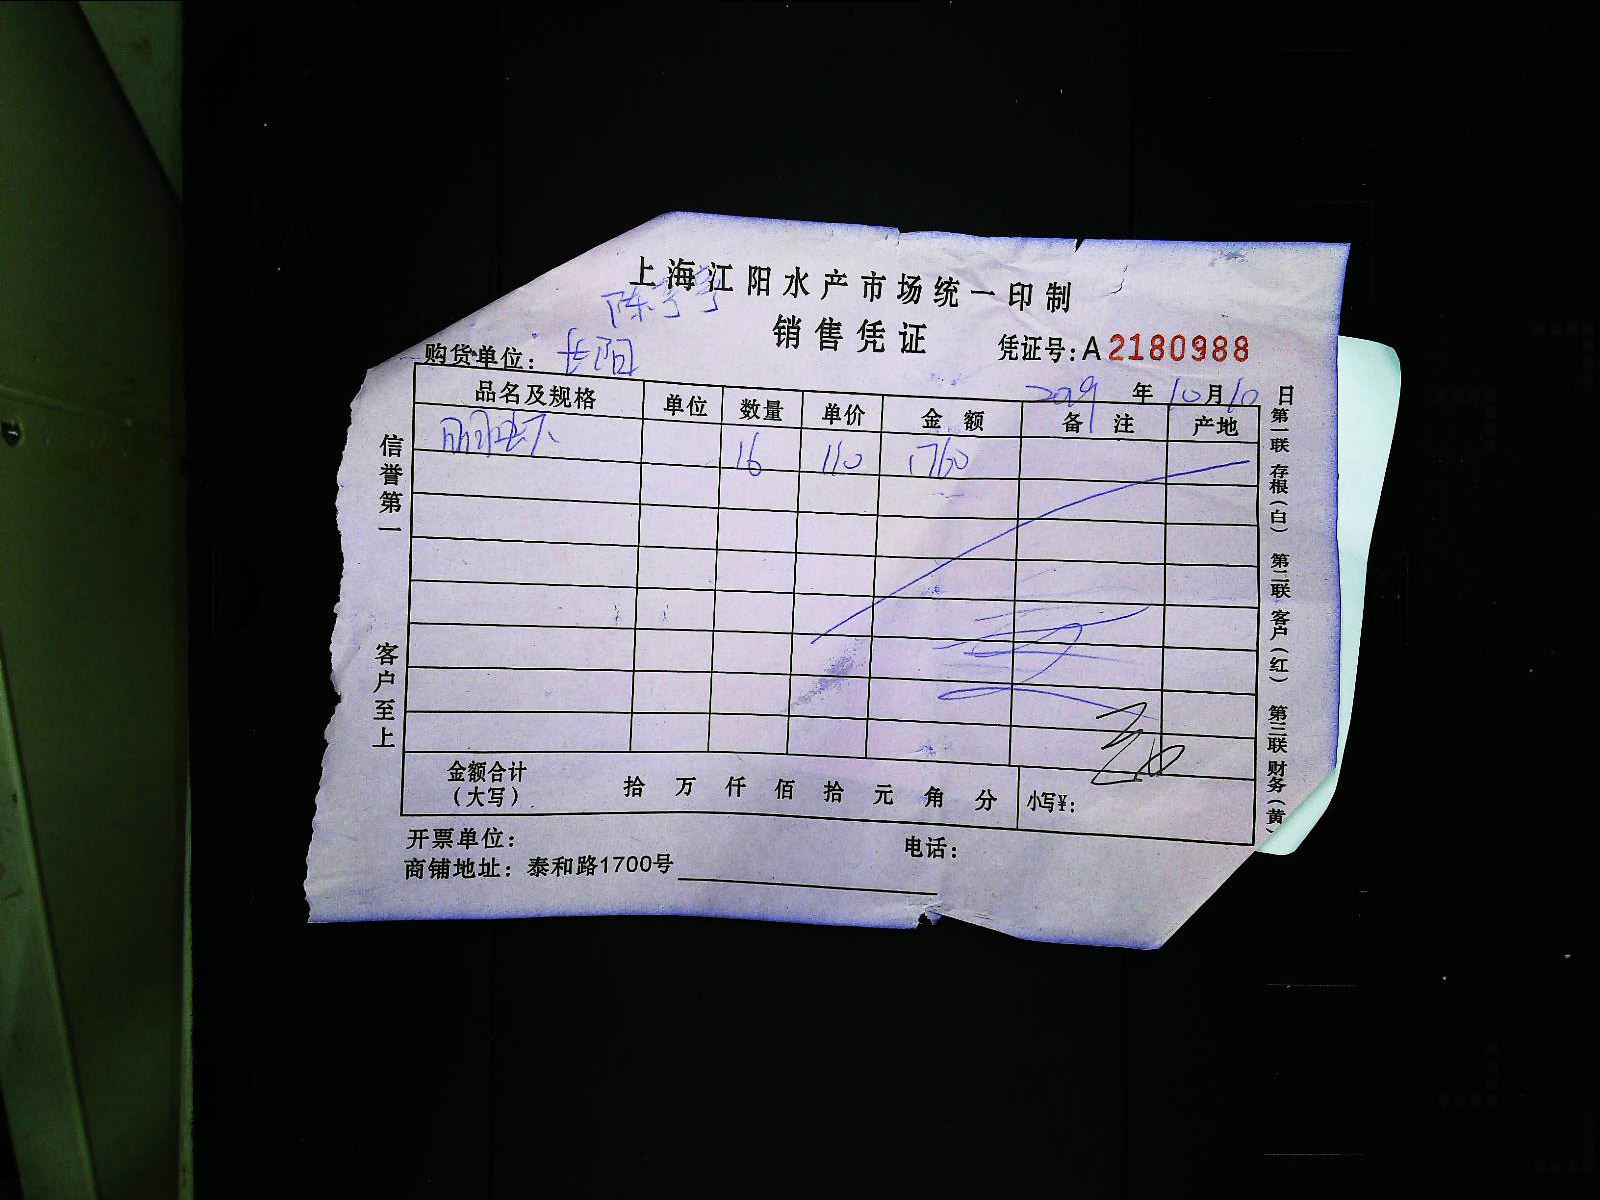 上海江阳水产市场统一印制
陈宇宇
销售凭证
凭证号:A2180988
购货单位: 长阳
2019年10月10日
品名及规格 单位 数量 单价 金额 备注 产地
16 110 1760
信誉第一
客户至上
第一联 存根(白) 第二联 客户(红) 第三联 财务(黄)
金额合计(大写) 拾 万 仟 佰 拾 元 角 分 小写¥:
开票单位: 电话:
商铺地址: 泰和路1700号